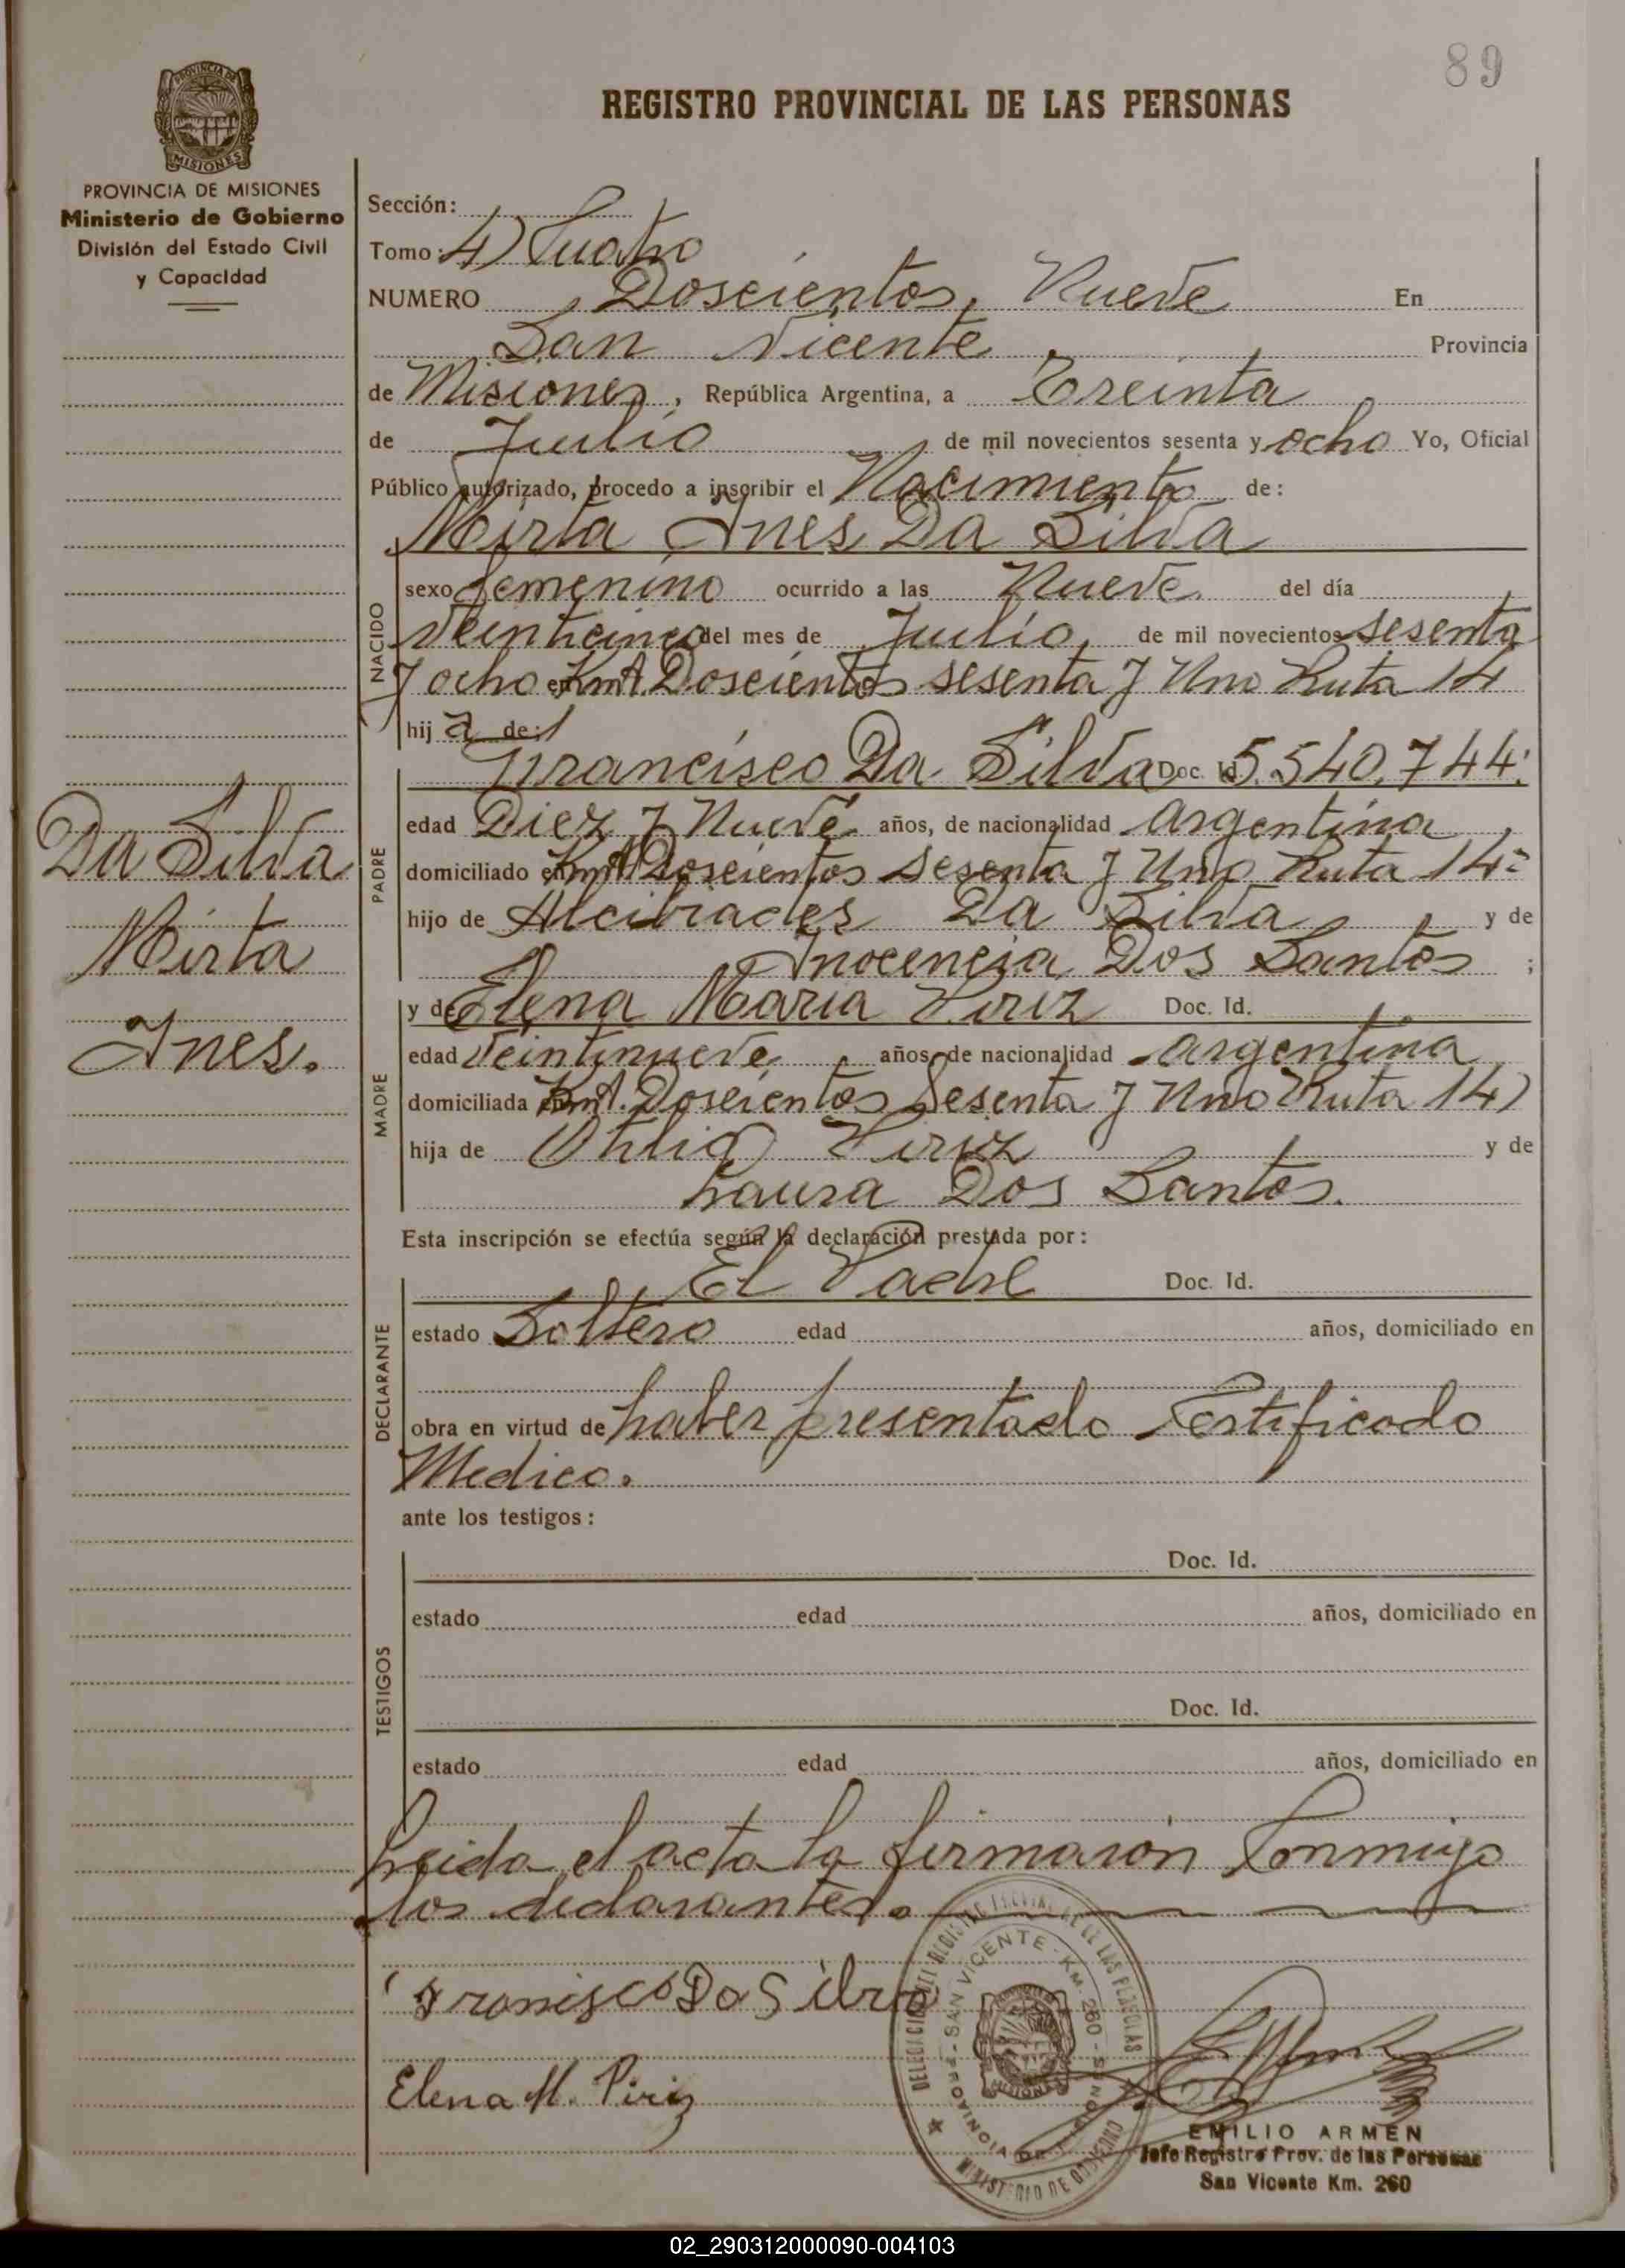 89
REGISTRO PROVINCIAL DE LAS PERSONAS
PROVINCIA DE MISIONES
MISIONES
PROVINCIA DE MISIONES
Ministerio de Gobierno
División del Estado Civil
y Capacidad
Da Silva
Mirta
Ines.
Sección:
Tomo: 4) Cuatro
NUMERO Doscientos, Nueve En
San Vicente Provincia
de Misiones, República Argentina, a Treinta
de Julio de mil novecientos sesenta y ocho Yo, Oficial
Público autorizado, procedo a inscribir el Nacimiento de:
Mirta Ines Da Silva
NACIDO
sexo femenino ocurrido a las Nueve del día
Veinticinco del mes de Julio, de mil novecientos sesenta
y ocho en Kmt. Doscientos sesenta y Uno Ruta 14
hija de:
PADRE
Francisco Da Silva Doc. Id. 5.540.744.
edad Diez y Nueve años, de nacionalidad Argentina,
domiciliado en Kmt. Doscientos Sesenta y Uno Ruta 14
hijo de Alcibiades Da Silva y de
Inocencia Dos Santos ;
MADRE
y de Elena Maria Piriz Doc. Id.
edad Veintinueve años, de nacionalidad Argentina
domiciliada Kmt. Doscientos Sesenta y Uno Ruta 14)
hija de Piriz y de
Laura Dos Santos.
Esta inscripción se efectúa según la declaración prestada por:
DECLARANTE
El Padre Doc. Id.
estado Soltero edad años, domiciliado en
obra en virtud de haber presentado Certificado
Medico.
ante los testigos:
TESTIGOS
Doc. Id.
estado edad años, domiciliado en
Doc. Id.
estado edad años, domiciliado en
Leida el acta la firmaron Conmigo
los declarantes.
Francisco Da Silva
Elena M. Piriz
SAN VICENTE - KM. 260 - MISIONES
PROVINCIA DE
MINISTERIO DE GOBIERNO
EMILIO ARMEN
Jefe Registro Prov. de las Personas
San Vicente Km. 260
02_290312000090-004103